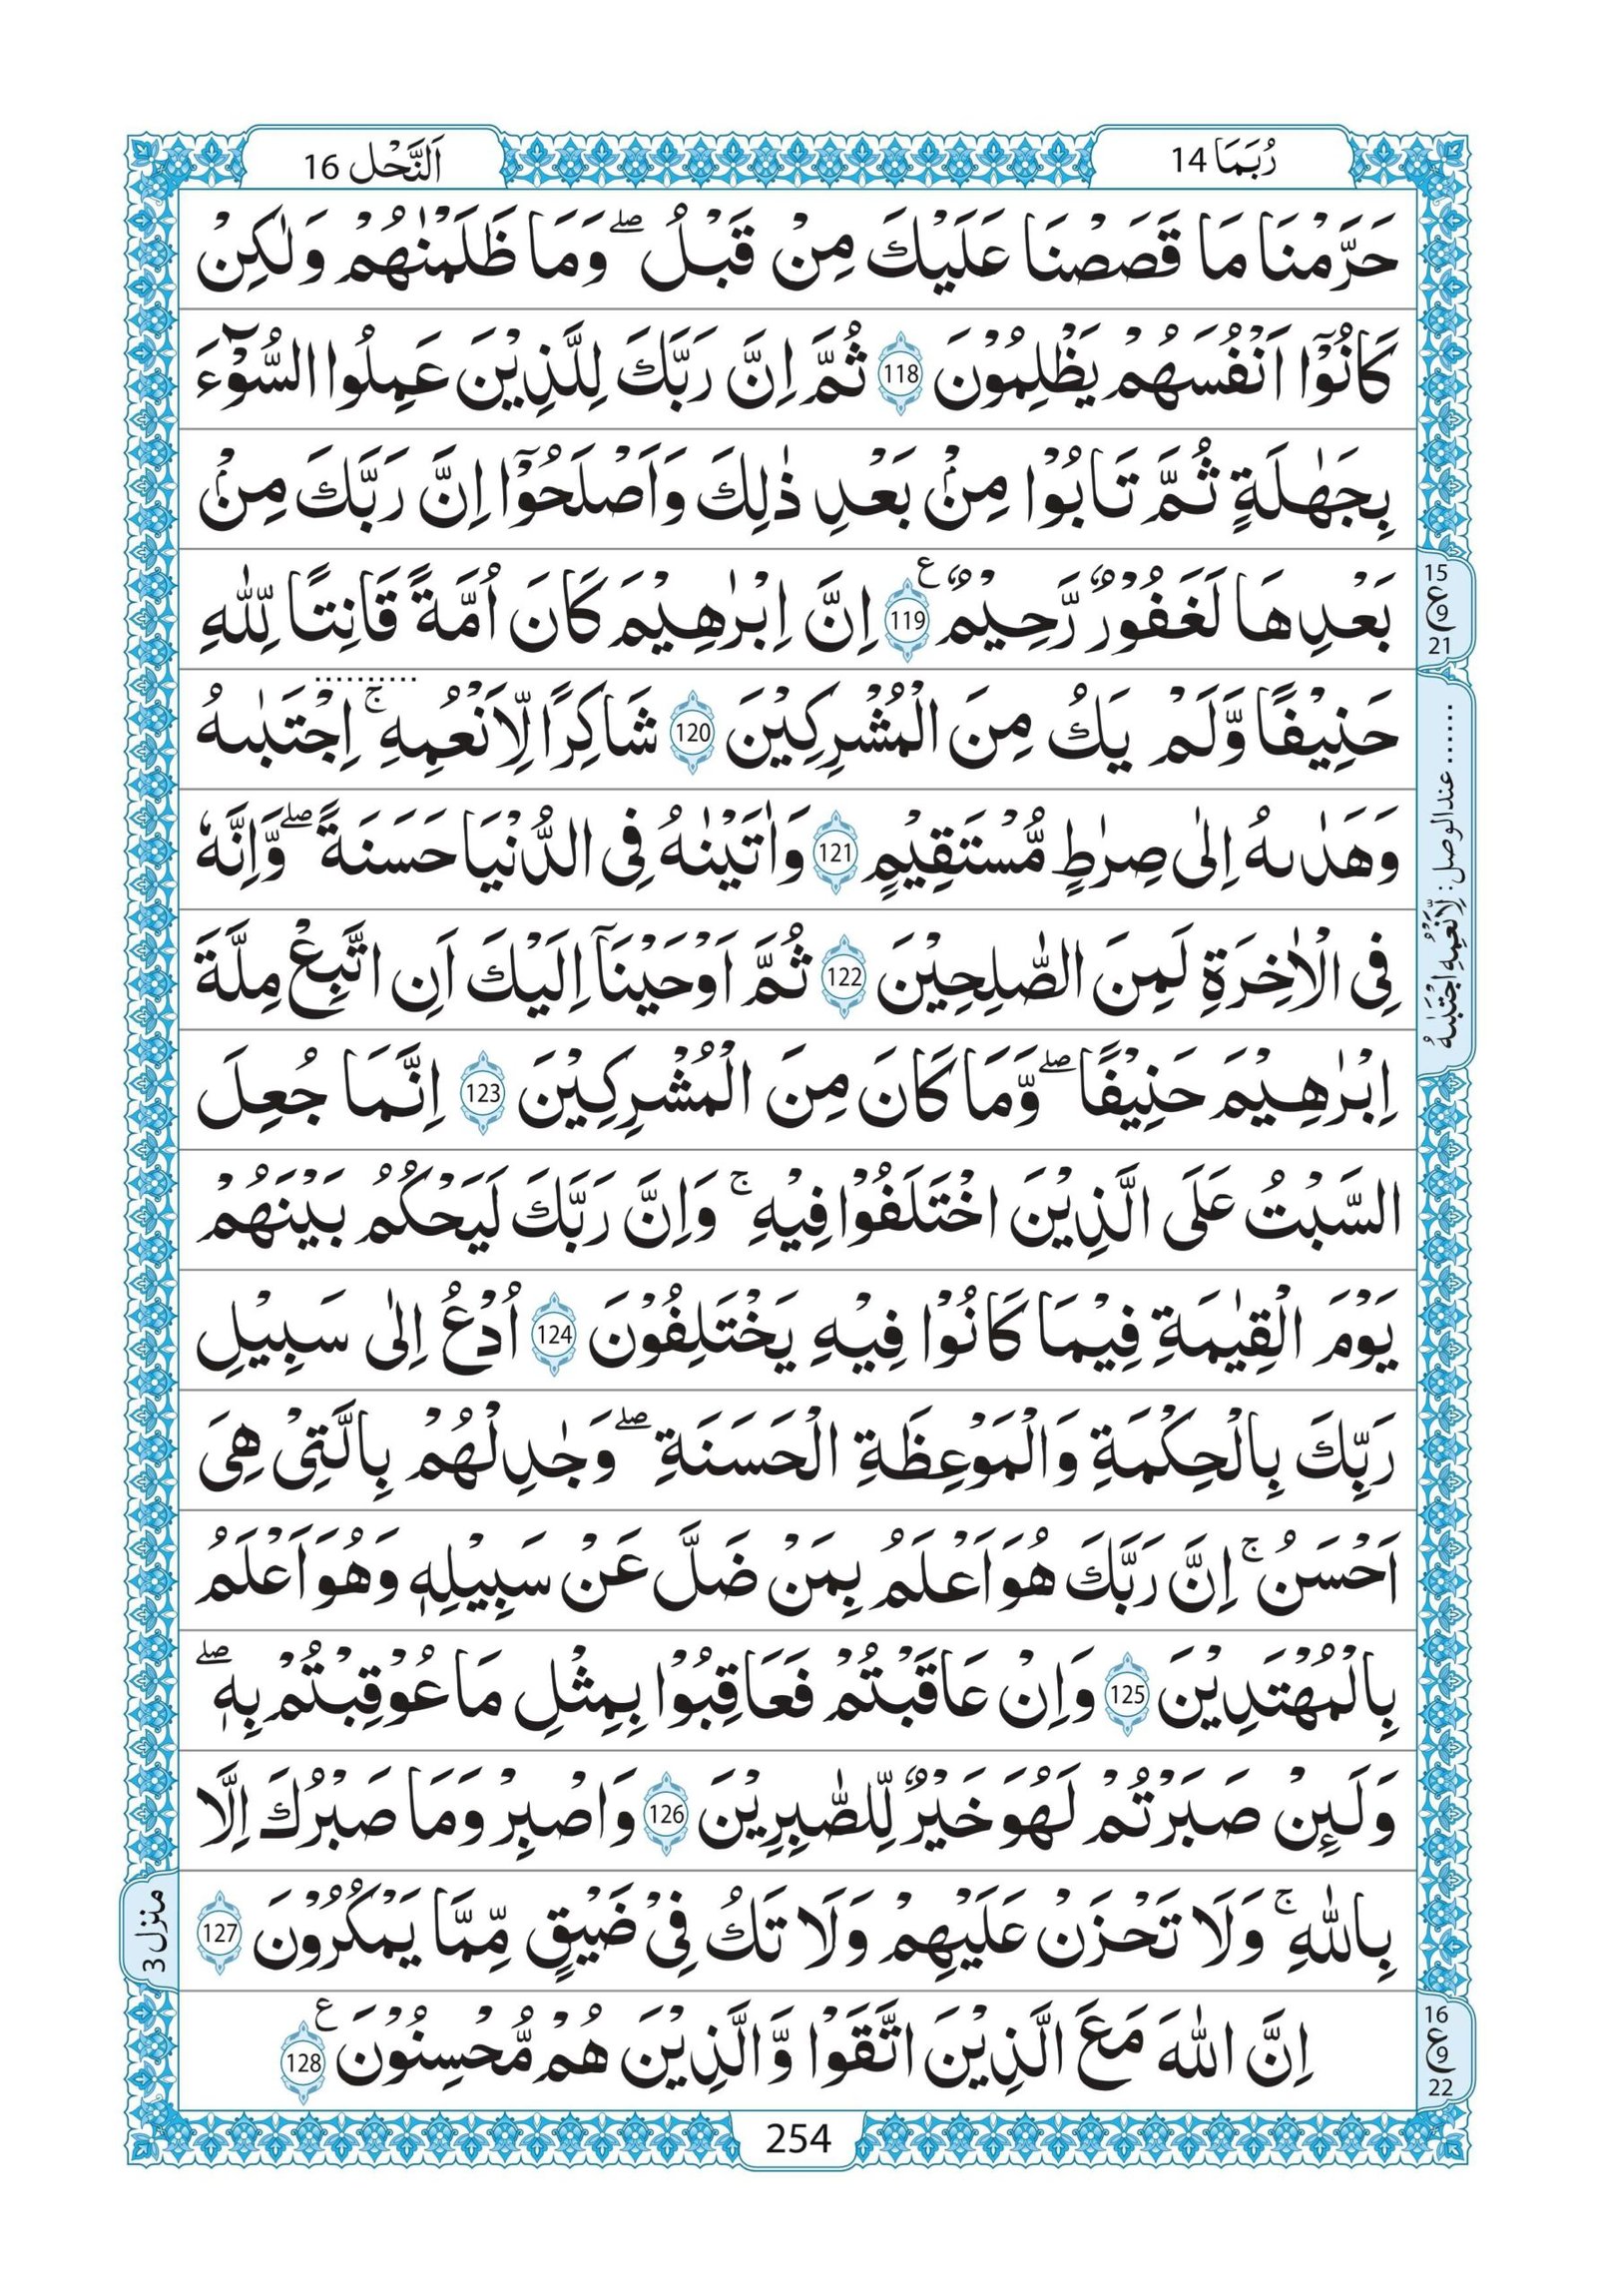 رُبَمَا 14
اَلنَّحْل 16
حَرَّمْنَا مَا قَصَصْنَا عَلَيْكَ مِنْ قَبْلُ ۖ وَمَا ظَلَمْنٰهُمْ وَلٰكِنْ
كَانُوْٓا اَنْفُسَهُمْ يَظْلِمُوْنَ 118 ثُمَّ اِنَّ رَبَّكَ لِلَّذِيْنَ عَمِلُوا السُّوْٓءَ
بِجَهٰلَةٍ ثُمَّ تَابُوْا مِنْۢ بَعْدِ ذٰلِكَ وَاَصْلَحُوْٓا اِنَّ رَبَّكَ مِنْۢ
بَعْدِهَا لَغَفُوْرٌ رَّحِيْمٌ 119 ع اِنَّ اِبْرٰهِيْمَ كَانَ اُمَّةً قَانِتًا لِّلّٰهِ
15
ع
9
21
حَنِيْفًا وَّلَمْ يَكُ مِنَ الْمُشْرِكِيْنَ 120 شَاكِرًا لِّاَنْعُمِهِ ۚ اِجْتَبٰىهُ
وَهَدٰىهُ اِلٰى صِرٰطٍ مُّسْتَقِيْمٍ 121 وَاٰتَيْنٰهُ فِى الدُّنْيَا حَسَنَةً ۖ وَّاِنَّهٗ
فِى الْاٰخِرَةِ لَمِنَ الصّٰلِحِيْنَ 122 ثُمَّ اَوْحَيْنَآ اِلَيْكَ اَنِ اتَّبِعْ مِلَّةَ
....... عند الوصل: لِّاَنْعُمِهِ اجْتَبٰىهُ
اِبْرٰهِيْمَ حَنِيْفًا ۖ وَّمَا كَانَ مِنَ الْمُشْرِكِيْنَ 123 اِنَّمَا جُعِلَ
السَّبْتُ عَلَى الَّذِيْنَ اخْتَلَفُوْا فِيْهِ ۚ وَاِنَّ رَبَّكَ لَيَحْكُمُ بَيْنَهُمْ
يَوْمَ الْقِيٰمَةِ فِيْمَا كَانُوْا فِيْهِ يَخْتَلِفُوْنَ 124 اُدْعُ اِلٰى سَبِيْلِ
رَبِّكَ بِالْحِكْمَةِ وَالْمَوْعِظَةِ الْحَسَنَةِ ۖ وَجٰدِلْهُمْ بِالَّتِىْ هِىَ
اَحْسَنُ ۚ اِنَّ رَبَّكَ هُوَ اَعْلَمُ بِمَنْ ضَلَّ عَنْ سَبِيْلِهٖ وَهُوَ اَعْلَمُ
بِالْمُهْتَدِيْنَ 125 وَاِنْ عَاقَبْتُمْ فَعَاقِبُوْا بِمِثْلِ مَا عُوْقِبْتُمْ بِهٖ ۖ
وَلَئِنْ صَبَرْتُمْ لَهُوَ خَيْرٌ لِّلصّٰبِرِيْنَ 126 وَاصْبِرْ وَمَا صَبْرُكَ اِلَّا
بِاللّٰهِ ۚ وَلَا تَحْزَنْ عَلَيْهِمْ وَلَا تَكُ فِىْ ضَيْقٍ مِّمَّا يَمْكُرُوْنَ 127
منزل 3
اِنَّ اللّٰهَ مَعَ الَّذِيْنَ اتَّقَوْا وَّالَّذِيْنَ هُمْ مُّحْسِنُوْنَ 128 ع
16
ع
9
22
254